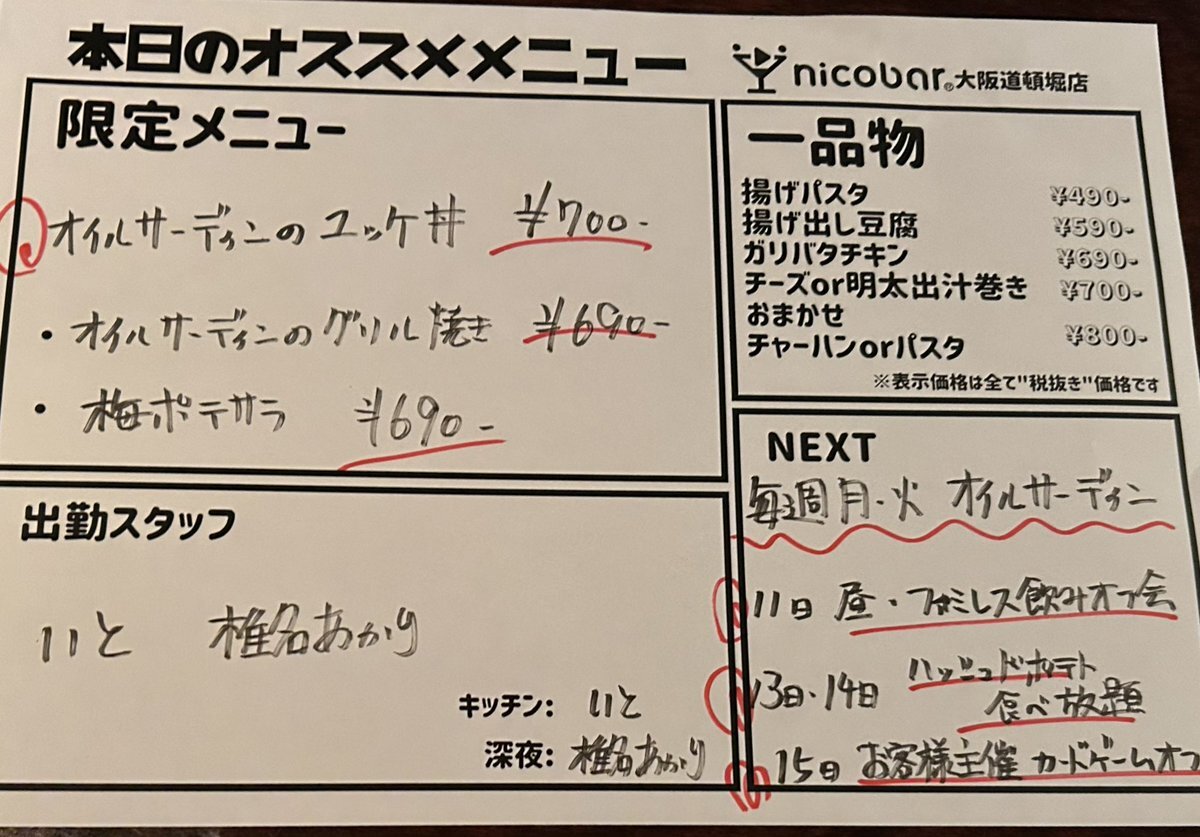 本日のオススメメニュー
nicobar® 大阪道頓堀店
限定メニュー
オイルサーディンのユッケ丼 ¥700-
・オイルサーディンのグリル焼き ¥690-
・梅ポテサラ ¥690-
一品物
揚げパスタ ¥490-
揚げ出し豆腐 ¥590-
ガリバタチキン ¥690-
チーズor明太出汁巻き ¥700-
おまかせ
チャーハンorパスタ ¥800-
※表示価格は全て"税抜き"価格です
出勤スタッフ
いと 椎名あかり
キッチン: いと
深夜: 椎名あかり
NEXT
毎週月・火 オイルサーディン
11日 昼・ファミレス飲みオフ会
13日・14日 ハッシュドポテト
食べ放題
15日 お客様主催 カードゲームオフ